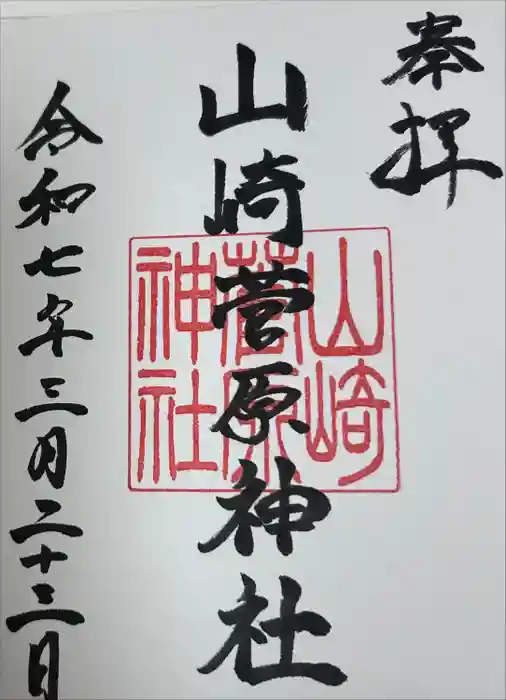 奉拝
山崎菅原神社
山崎
菅原
神社
令和七年三月二十三日